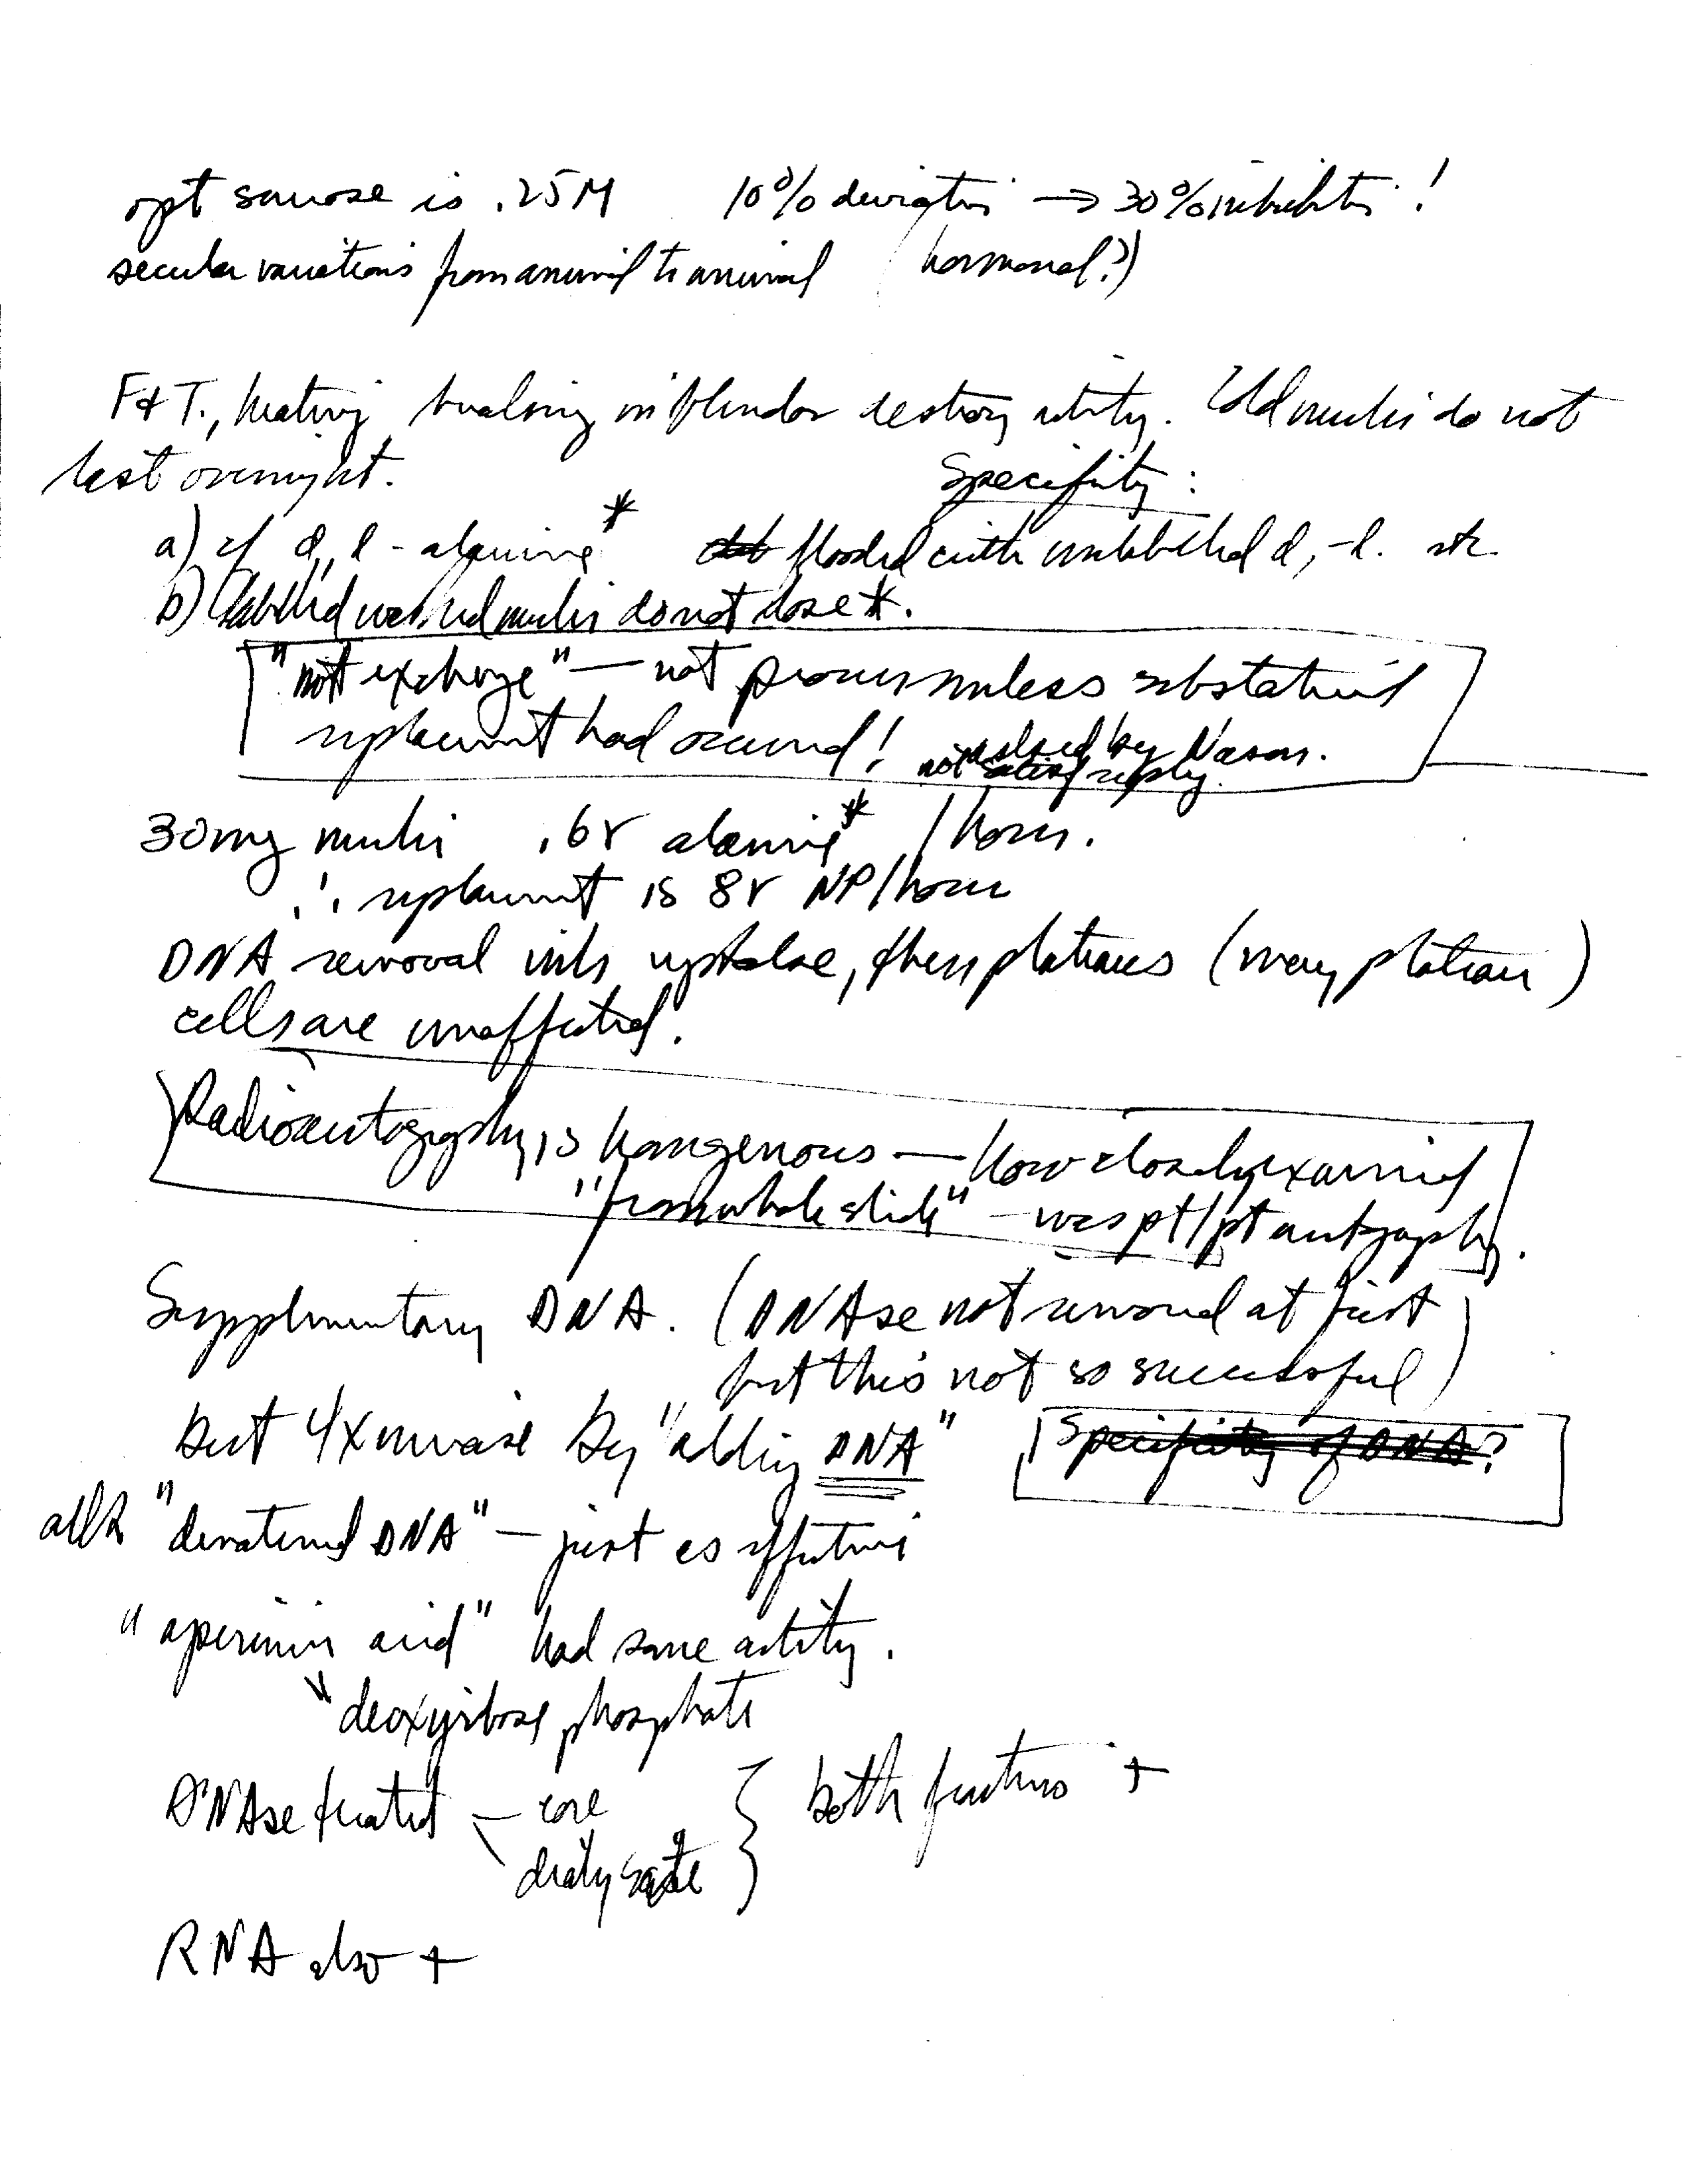 opt sucrose is .25M 10% deviation → 30% inhibition !
secular variations from animal to animal (hormonal?)
F & T., heating, breaking in blendor destroy activity. Old nuclei do not
last overnight. Specificity :
a) if d, l - alanine* flooded with unlabelled d, -l. etc.
b) labelled washed nuclei do not lose *.
"not exchange" — not proven unless substantial
replacement had occurred! asked by Nason.
not satisf reply.
30mg nuclei .6γ alanine* / hour.
∴ replacement is 8γ NP/hour
DNA removal inhs uptake, then plateaus (wavy plateau)
cells are unaffected.
Radioautography is homogenous — How closely examined
"from whole slide" — was pt/pt autography.
Supplementary DNA. (DNAse not removed at first
but this not so successful)
but 4x increase by "adding DNA" Specificity of DNA?
"denatured DNA" — just as effective
"apurinic acid" had same activity.
"deoxyribose phosphate
DNAse treated — core } both fractions +
dialysate
RNA also +